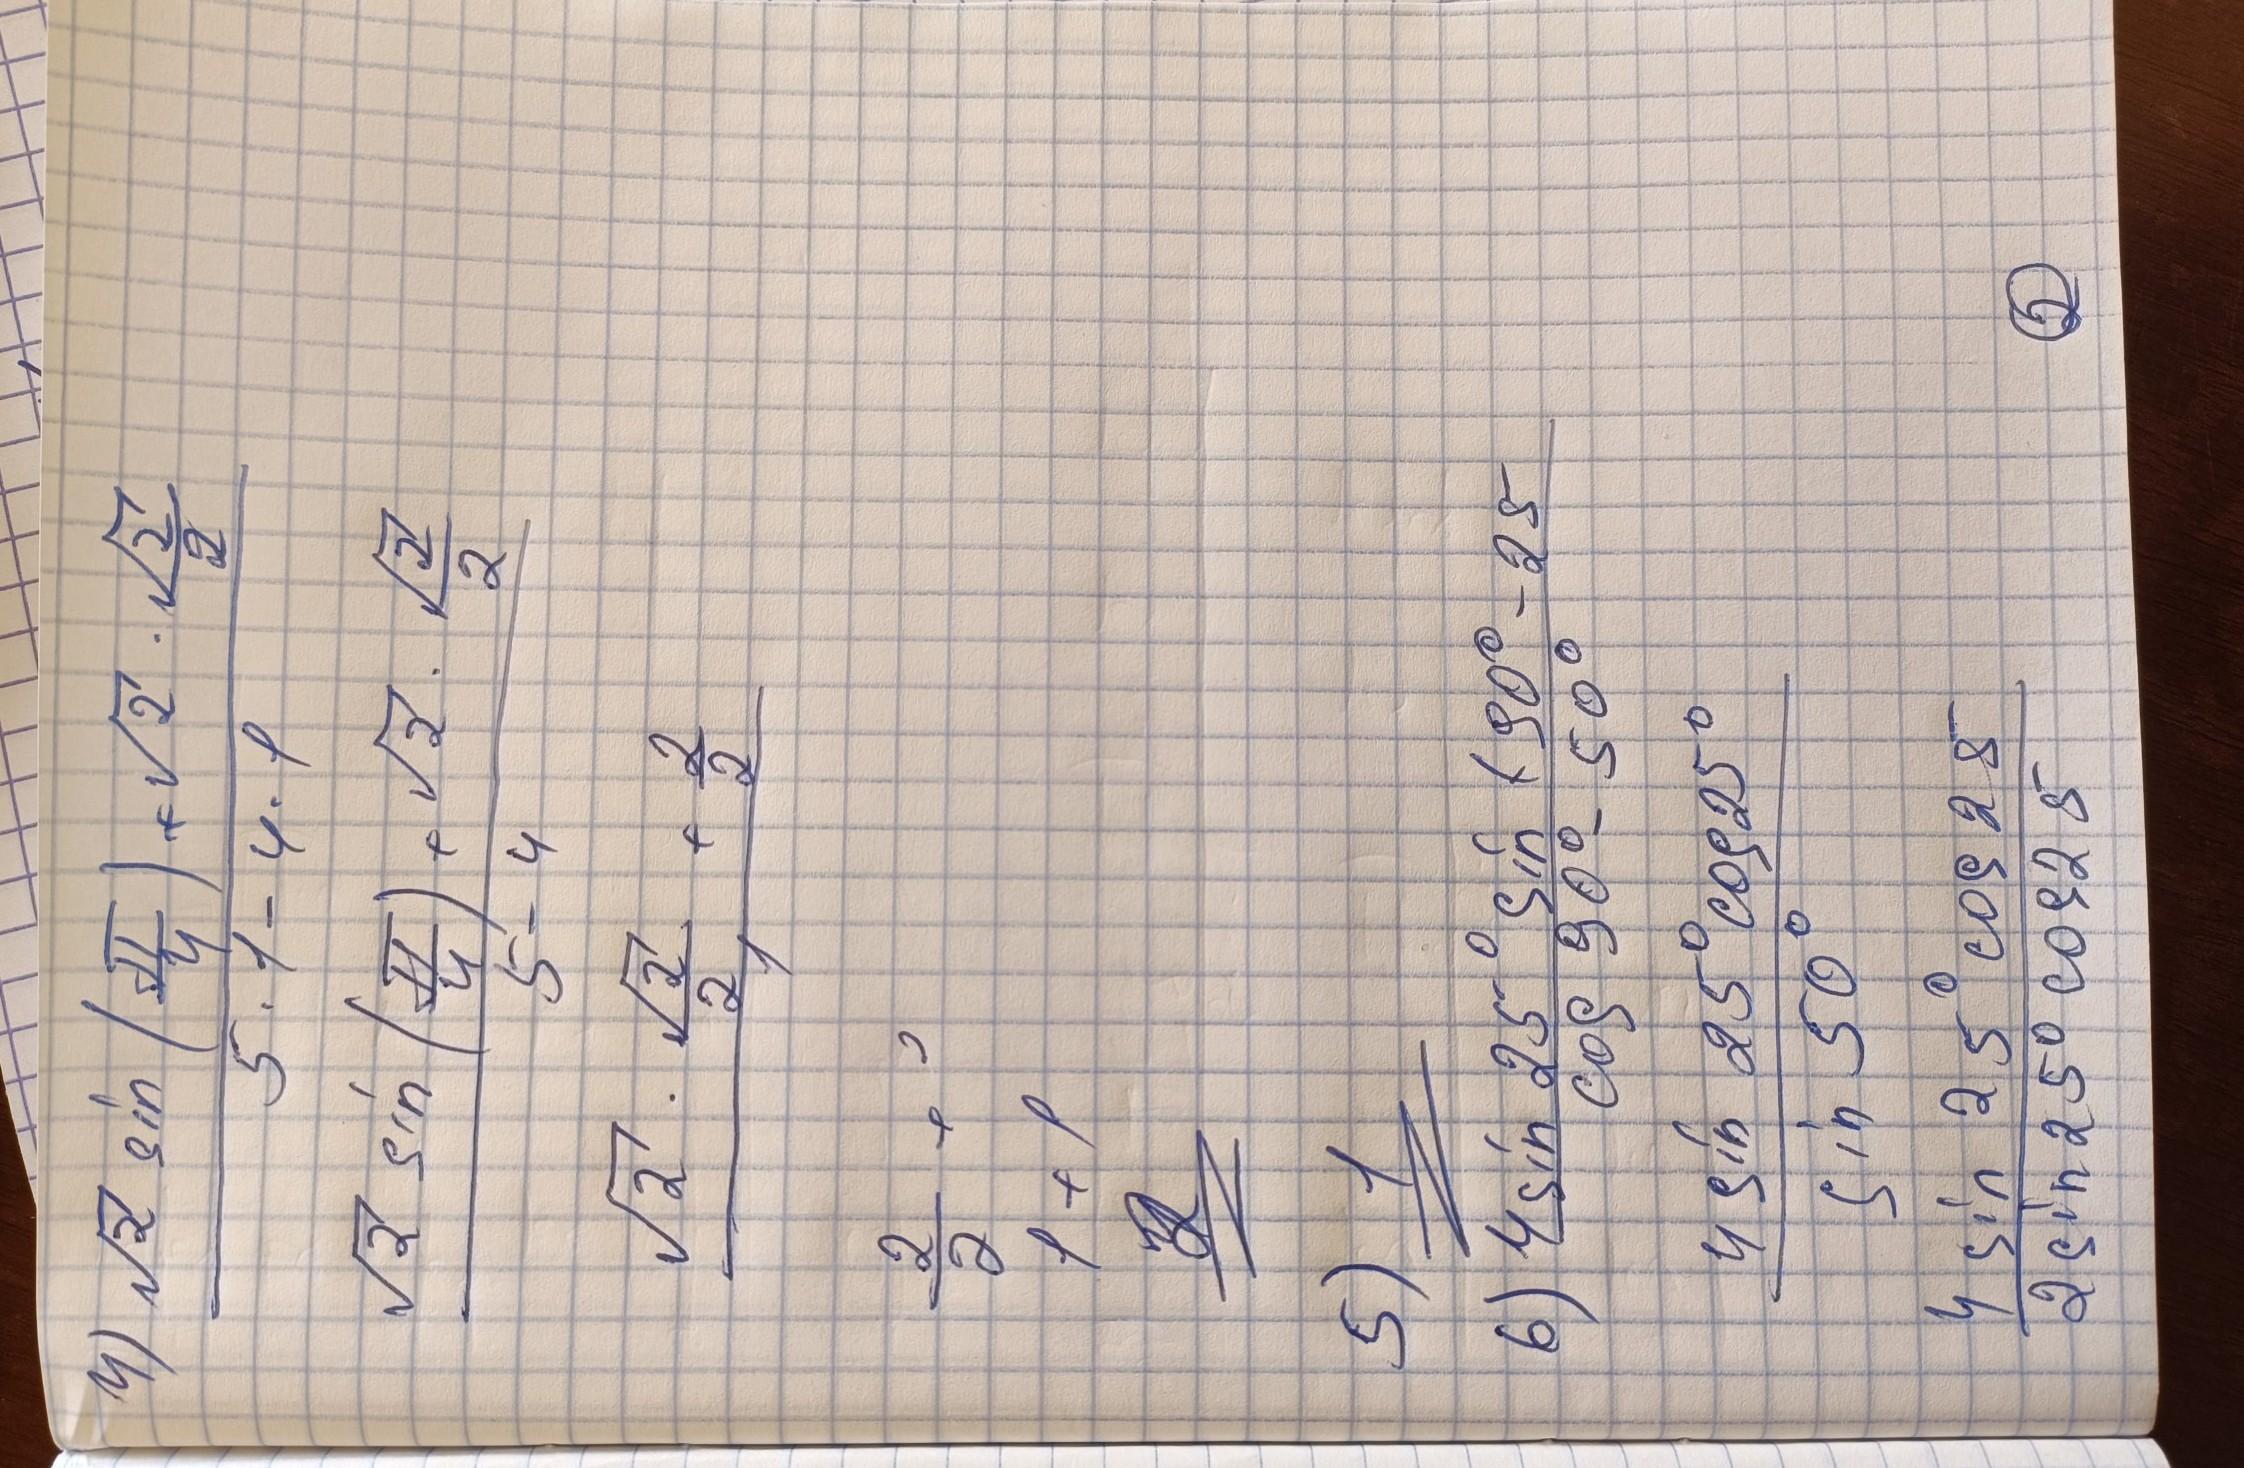 4) √2 sin (π/4) + √2 · √2/2
5 · 1 - 4 · 1
√2 sin (π/4) + √2 · √2/2
5 - 4
√2 · √2/2 + 2/2
1
2/2 +
1 + 1
2
5) 1
6) 4 sin 25° sin (90° - 25
cos 90° - 50°
4 sin 25° cos 25°
sin 50°
4 sin 25° cos 25
2 sin 25° cos 25
2